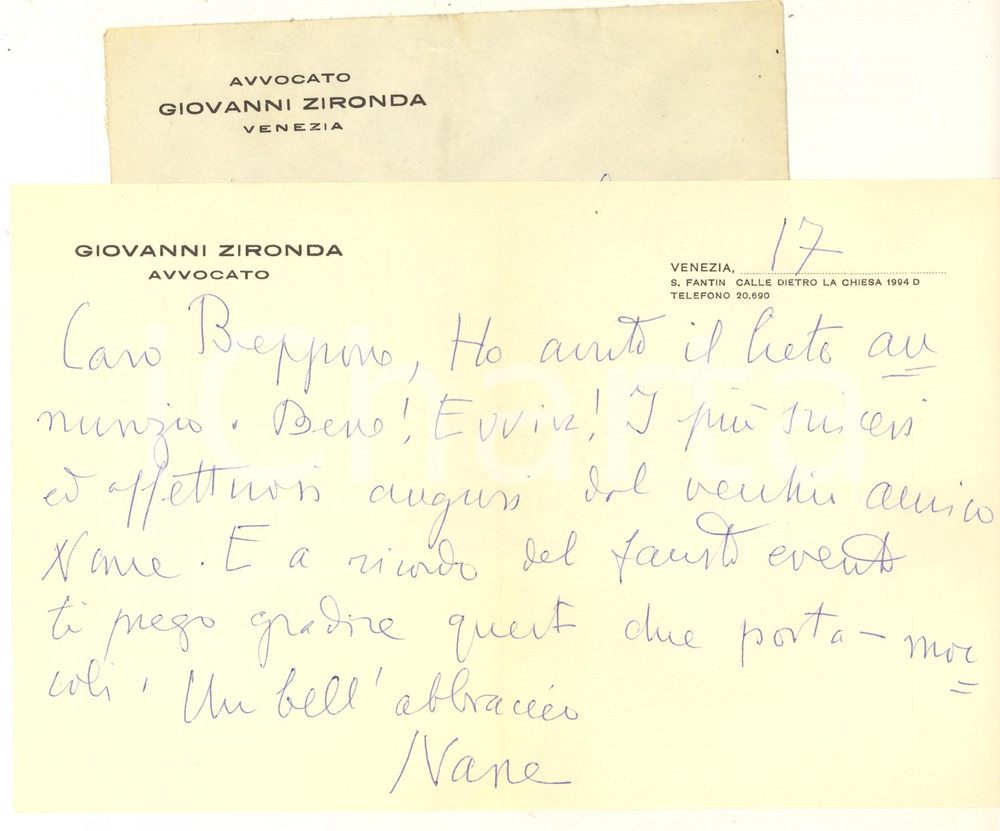 AVVOCATO
GIOVANNI ZIRONDA
VENEZIA
GIOVANNI ZIRONDA
AVVOCATO
VENEZIA, 17
S. FANTIN CALLE DIETRO LA CHIESA 1994 D
TELEFONO 20.690
Caro Beppono, Ho avuto il lieto an
nunzio. Bene! Evviva! I più sinceri
ed affettuosi auguri dal vecchio amico
Nane. E a ricordo del fausto evento
ti prego gradire questi due porta-moc
coli! Un bell'abbraccio
Nane
iCharta